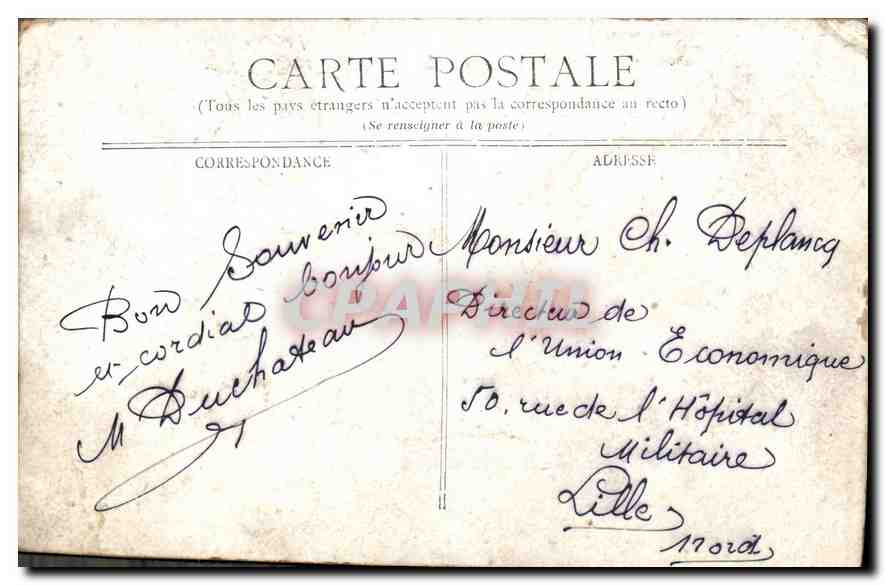 CARTE POSTALE
(Tous les pays étrangers n'acceptent pas la correspondance au recto)
(Se renseigner à la poste)
CORRESPONDANCE
Bon Souvenir
et cordial bonjour
M Duchateau
ADRESSE
Monsieur Ch. Deplancq
Directeur de
l'Union Economique
50, rue de l'Hôpital
Militaire
Lille
Nord
CPAPHIL